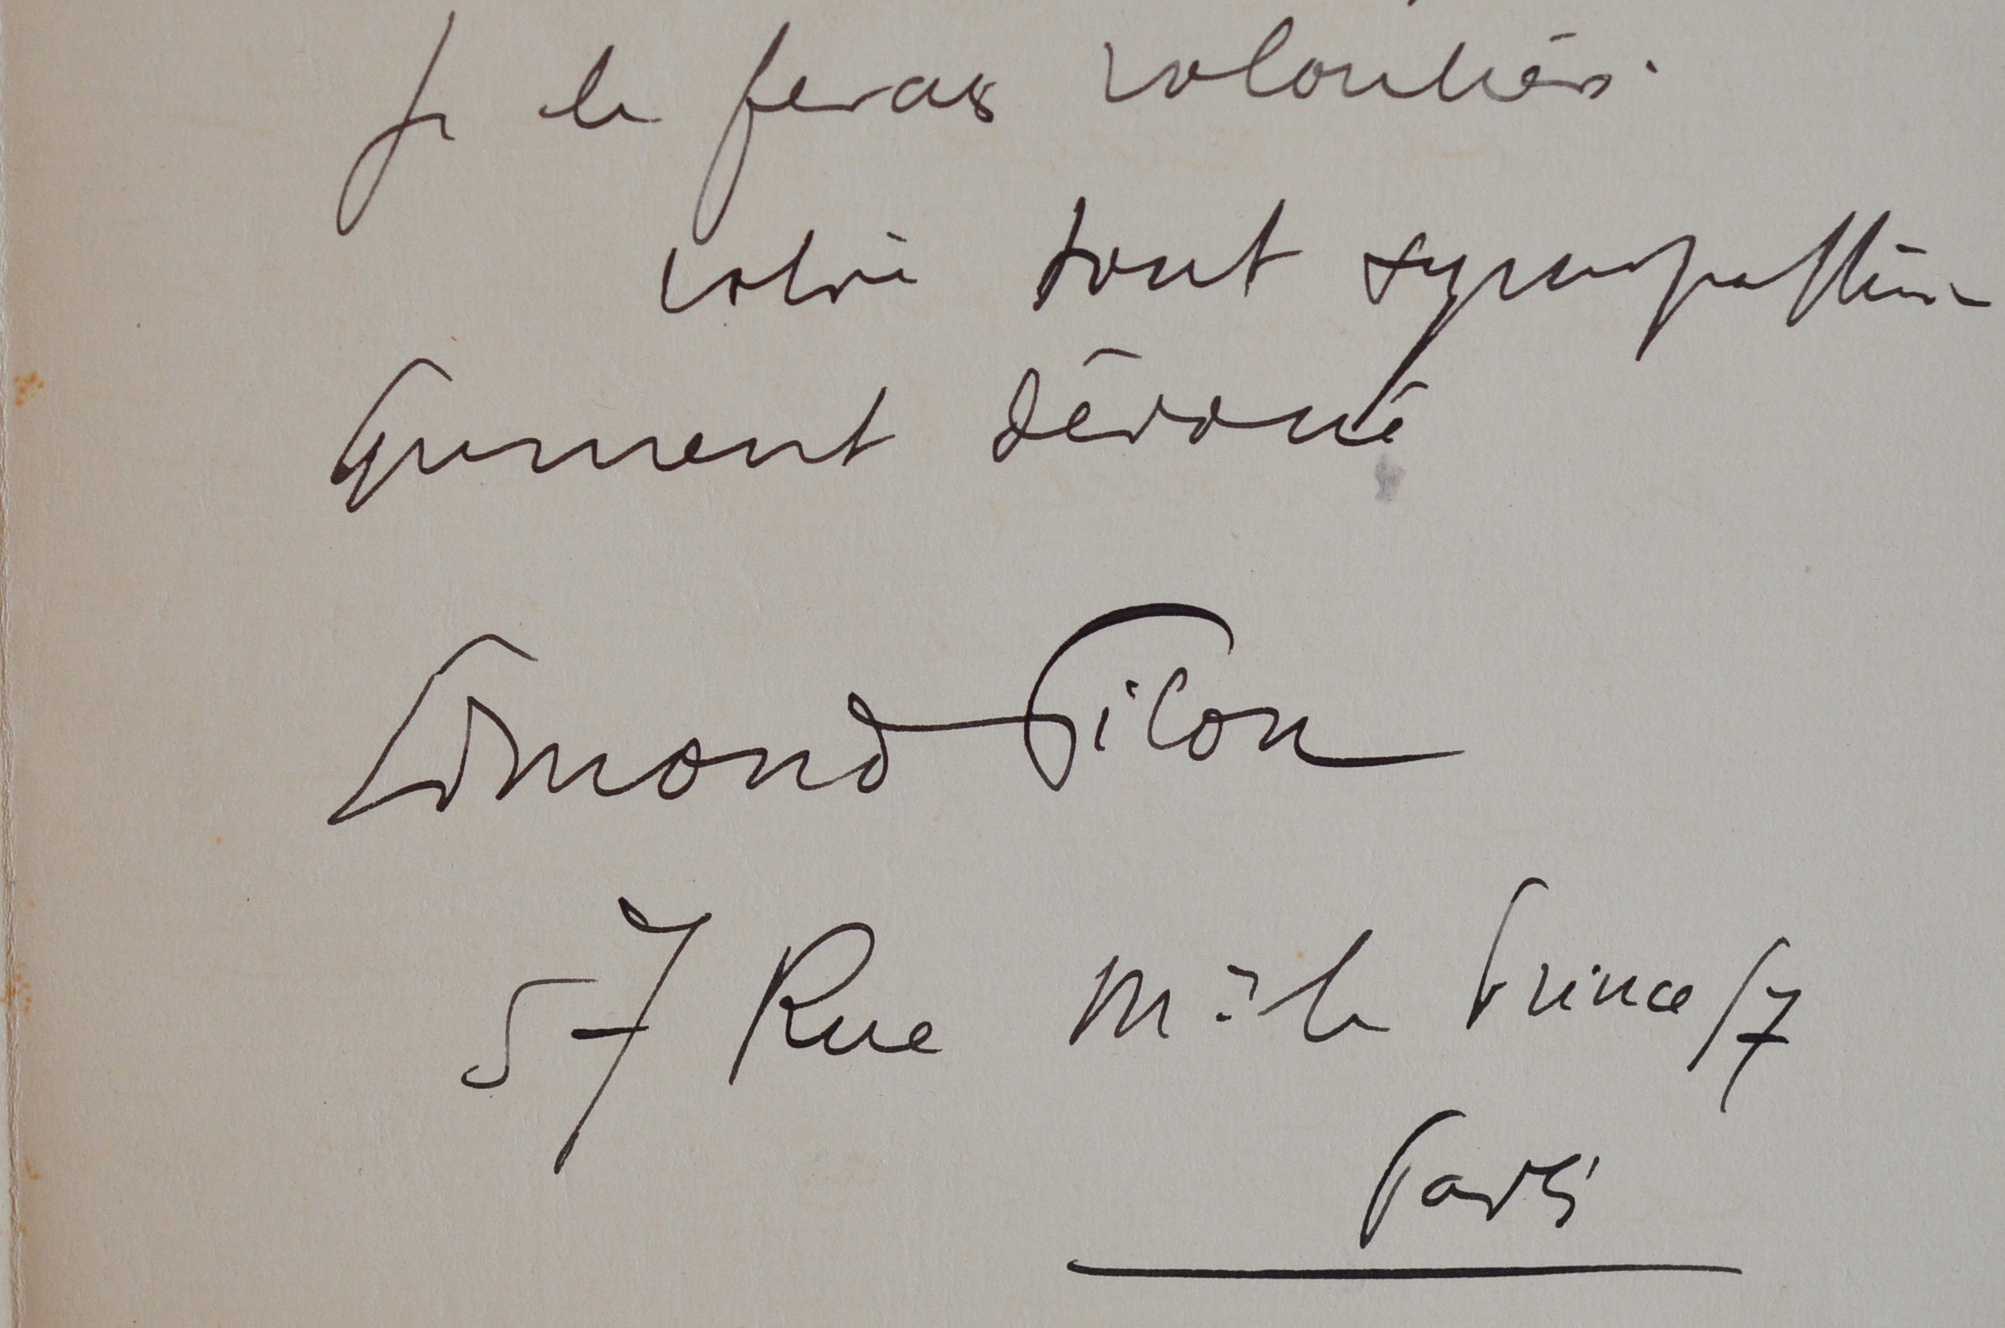 Je le ferai volontiers.
votre tout sympathi-
quement dévoué
Edmond Pilon
57 Rue Mr le Prince
Paris